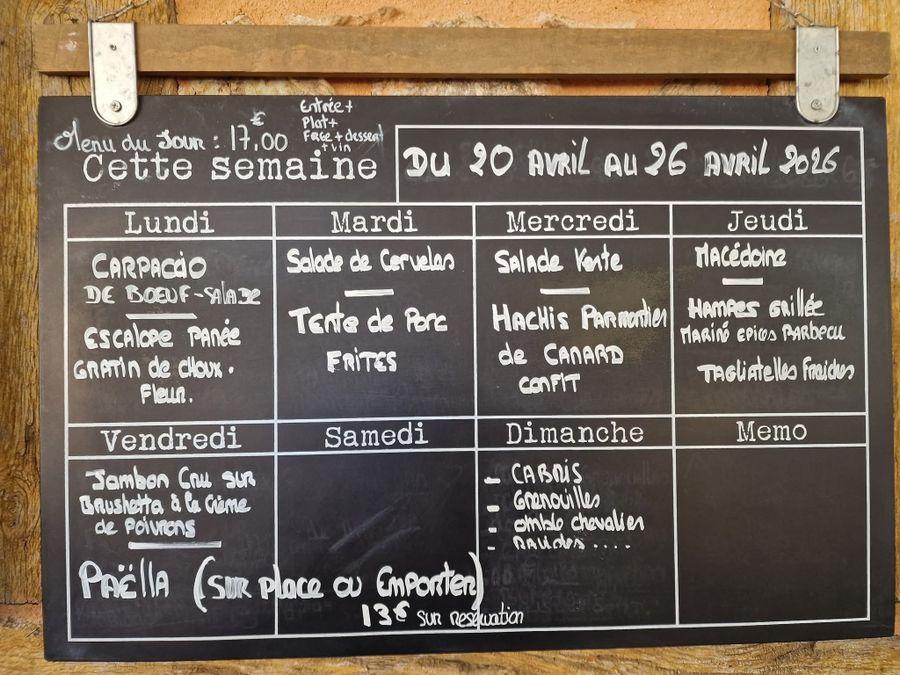 Menu du Jour : 17,00 €
Entrée +
Plat +
Frge + dessert
+ vin
Cette semaine
DU 20 AVRIL AU 26 AVRIL 2026
Lundi
CARPACCIO
DE BOEUF - SALADE
ESCALOPE PANÉE
GRATIN DE CHOUX.
Fleur.
Mardi
Salade de Cervelas
Tente de Porc
FRITES
Mercredi
SALADE Verte
HACHIS PARMONTIER
de CANARD
CONFIT
Jeudi
MACÉDOINE
HAMPES GRILLÉE
MARINÉ EPICES BARBECU
TAGLIATELLES FRAICHES
Vendredi
Jambon Cru sur
Brushetta à la Crème
de Poivrons
PAËLLA (SUR PLACE OU EMPORTER)
13€ sur reservation
Samedi
Dimanche
- CABRIS
- Grenouilles
- omble chevalier
Memo